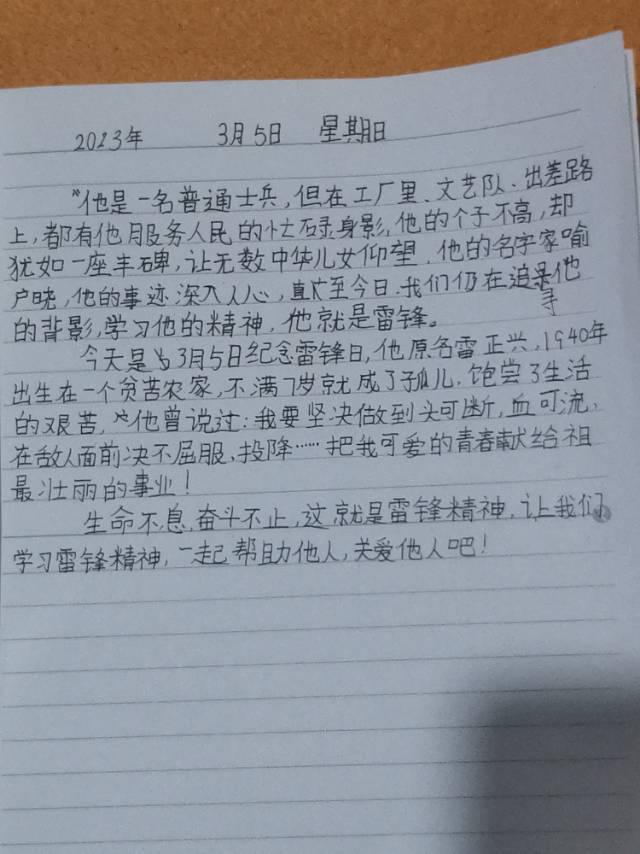 2023年 3月5日 星期日
"他是一名普通士兵,但在工厂里、文艺队、出差路
上,都有他服务人民的忙碌身影,他的个子不高,却
犹如一座丰碑,让无数中华儿女仰望,他的名字家喻
户晓,他的事迹深入人心,直忙至今日,我们仍在追寻他
的背影,学习他的精神,他就是雷锋。
今天是 3月5日纪念雷锋日,他原名雷正兴,1940年
出生在一个贫苦农家,不满7岁就成了孤儿,饱尝了生活
的艰苦,他曾说过:我要坚决做到头可断,血可流,
在敌人面前决不屈服、投降……把我可爱的青春献给祖
最壮丽的事业!
生命不息,奋斗不止,这就是雷锋精神,让我们
学习雷锋精神,一起帮助他人,关爱他人吧!